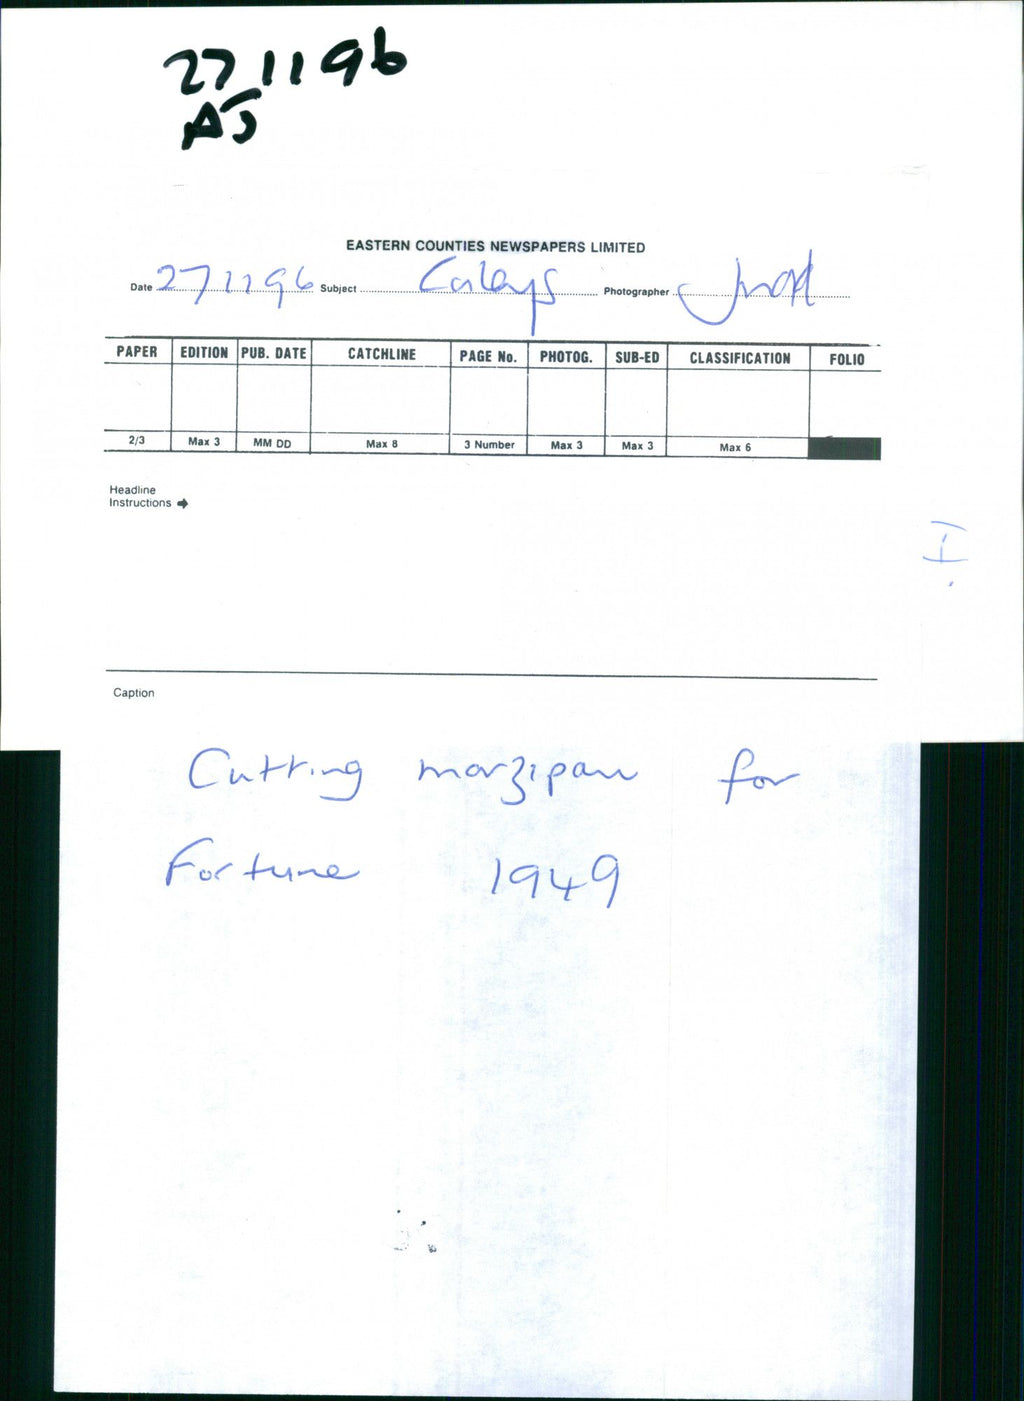 27 11 96
AJ
EASTERN COUNTIES NEWSPAPERS LIMITED
Date 27 11 96 Subject Caleys Photographer
PAPER EDITION PUB. DATE CATCHLINE PAGE No. PHOTOG. SUB-ED CLASSIFICATION FOLIO
2/3 Max 3 MM DD Max 8 3 Number Max 3 Max 3 Max 6
Headline
Instructions
I
Caption
Cutting marzipan for
Fortune 1949